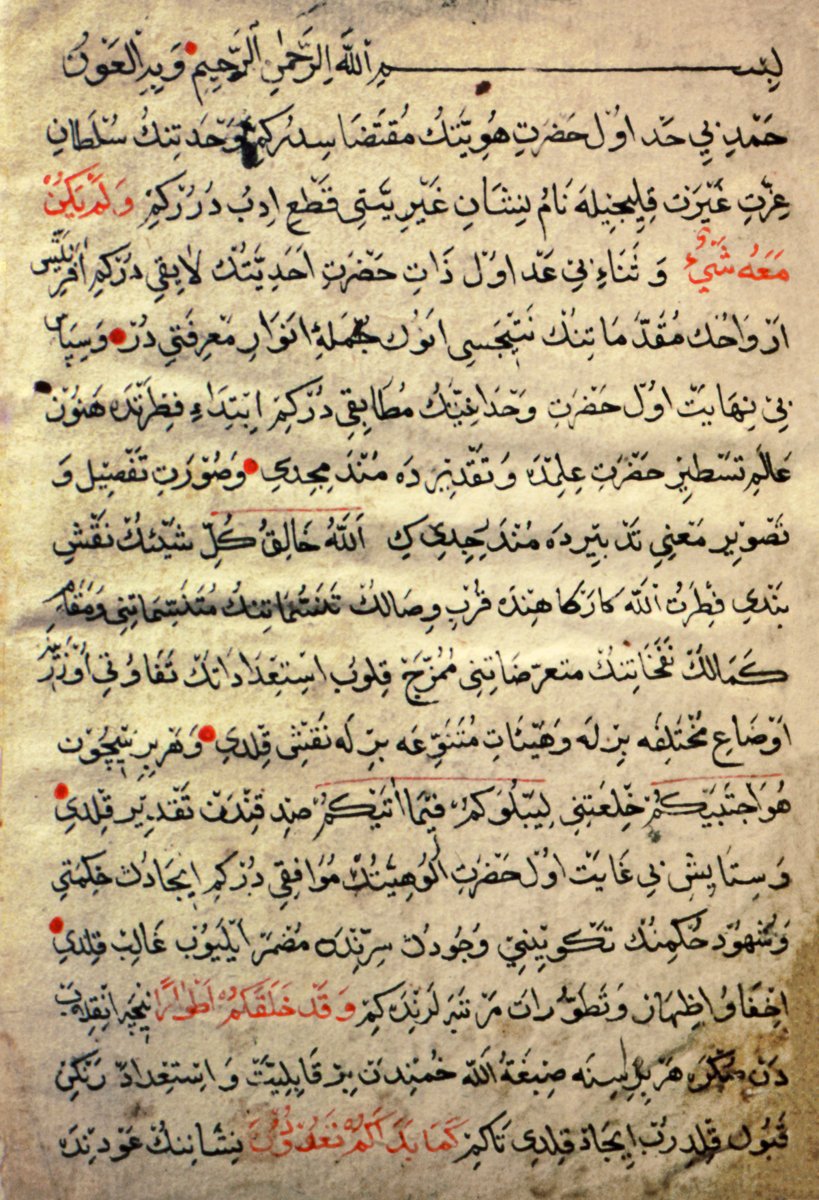 بِسْمِ اللّٰهِ الرَّحْمٰنِ الرَّحِيمِ وَبِهِ الْعَوْنُ
حَمْدِ بِي حَد اوُل حَضْرَتِ هُوِيَّتِنُكْ مُقْتَضَا سِدُركِمْ وَحْدَتِنُكْ سُلْطَانِ
عِزَّتِ غَيْرَتِ قِلِيجِيلَه نَامُ نِشَانِ غَيْرِيَّتِي قَطْعِ ادِبْ دُرُرْكِمْ وَلَمْ يَكُنْ
مَعَهُ شَيْءٌ وَ ثَنَاءِ بِي عَد اوُل ذَاتِ حَضْرَتِ اَحَدِيَّتُكْ لَايِقِي دُرْكِمِ
اَرْوَاحُكْ مُقَدَّمَاتِنُكْ نَتِيجَسِي اَنُوكْ جُمْلَهٔ اَنْوَارِ مَعْرِفَتِي دُرْ وَسِپَاسِ
بِي نِهَايَتْ اوُل حَضْرَتِ وَحْدَانِيَّتُكْ مُطَابِقِي دُرْكِمْ اِبْتِدَاءِ فِطْرَتْدَه هَنُوزْ
عَالَمِ تَسْطِيرِ حَضْرَتِ عِلْمِدَه وَ تَقْدِيرِ دَه مُنْدَمِجِدِي وَصُورَتِ تَفْصِيل وَ
تَصْوِيرِ مَعْنِي تَدْبِيرِدَه مُنْدَرِجِدِي كِ اَللّٰهُ خَالِقُ كُلِّ شَيْئِكْ نَقْشِ
بَنْدِي فِطْرَتُ اللّٰه كَارْكَا هِنْدَه قُرْبِ وِصَالُكْ تَنَسُّمَاتِنُكْ مُتَنَسِّمَاتِنِي وَمَقَامِ
كَمَالُكْ نَفَحَاتِنُكْ مُتَعَرِّضَاتِنِي مُمْتَزِجْ قُلُوبُ اسْتِعْدَادَاتُكْ تَفَاوُتِي اُوزَرْ
اَوْضَاعِ مُخْتَلِفَه بِرْلَه وَهَيْئَاتِ مُتَنَوِّعَه بِرْلَه نَقْشِ قِلْدِي وَهَر بِرِ نِيچُون
هُوَ اجْتَبَيكُمْ خِلْعَتِنِي لِيَبْلُوَكُمْ فِيمَا اٰتَيكُمْ صِدِقِنْدَنْ تَقْدِيرِ قِلْدِي
وَ سِتَايِشِ بِي غَايَتْ اوُل حَضْرَتِ اُلُوهِيَّتُكْ مُوَافِقِي دُرْكِمِ اِيجَادُكْ حِكْمَتِي
وَشُهُودِ حُكْمِنُكْ تَكْوِينِي وُجُودُكْ سِرِّنْدَه مُضْمَرْ اَيْلَيُوبْ غَالِبْ قِلْدِي
اِخْفَا وُ اِظْهَارِ وَ تَطَوُّرَاتِ مَرْتَبَه لَرِنْدَه كِمْ وَقَدْ خَلَقَكُمْ اَطْوَارًا نِيچَه اِنْقِلَابْ
دَنْ صُكْرَه هَر بِرِيسِنَه صِبْغَةُ اللّٰه خُمِنْدَنْ بِرْ قَابِلِيَّتْ وَ اِسْتِعْدَادْ رَنْكِنْ
قَبُول قِلْدِرُبْ اِيجَادْ قِلْدِي تَاكِمْ كَمَا بَدَاَكُمْ تَعُودُونَ نِشَانِنُكْ عَوْدِنْدَه